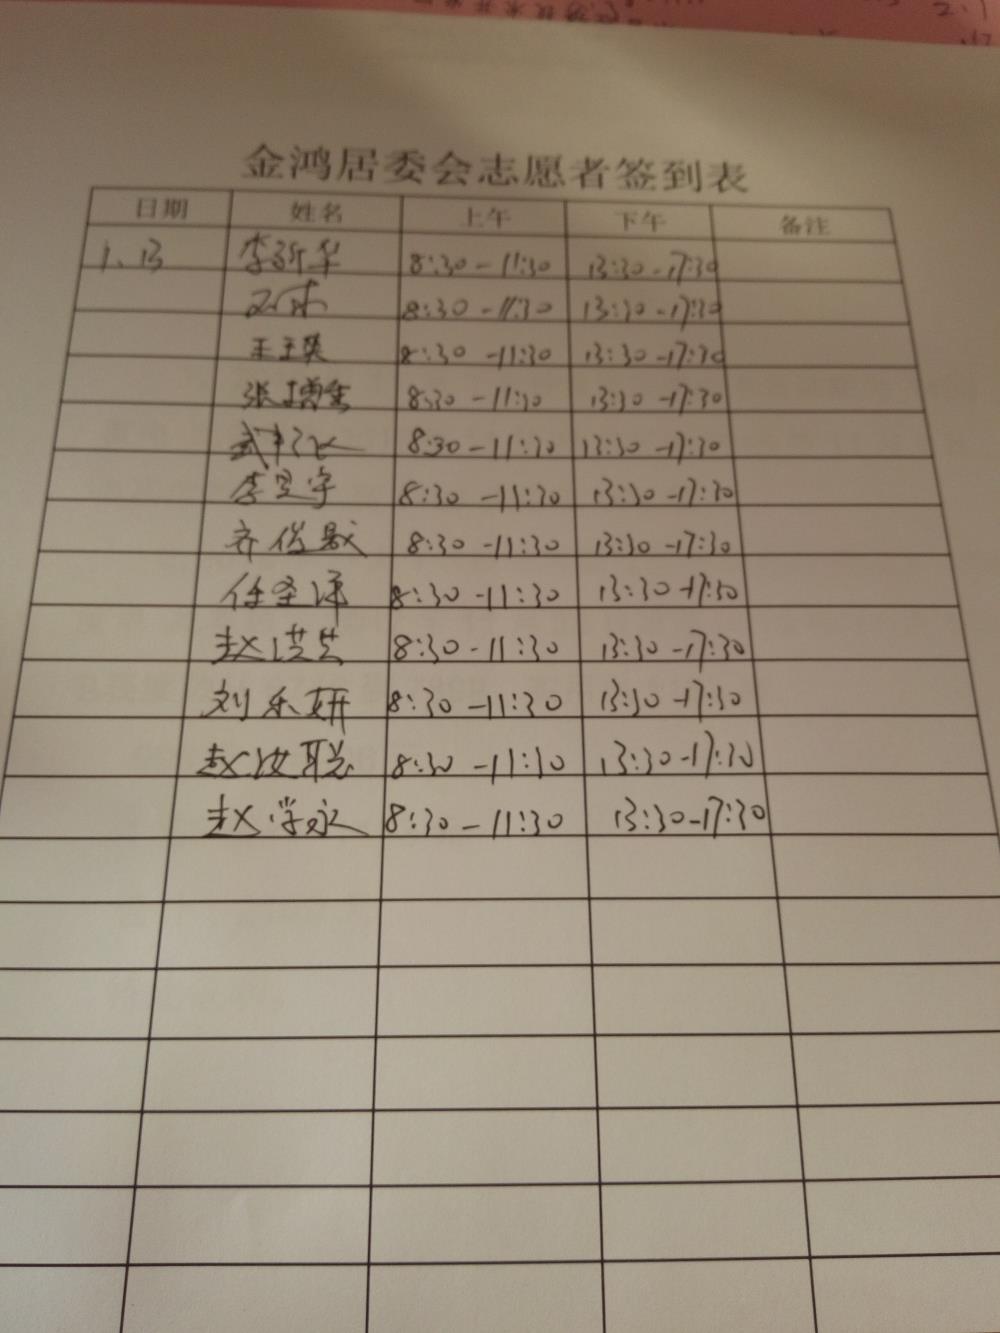 金鸿居委会志愿者签到表
日期 姓名 上午 下午 备注
1.13 李新华 8:30-11:30 13:30-17:30
8:30-11:30 13:30-17:30
王玉英 8:30-11:30 13:30-17:30
张增 8:30-11:30 13:30-17:30
武 8:30-11:30 13:30-17:30
李昱宇 8:30-11:30 13:30-17:30
齐俊 8:30-11:30 13:30-17:30
任圣译 8:30-11:30 13:30-17:30
赵洪芸 8:30-11:30 13:30-17:30
刘乐妍 8:30-11:30 13:30-17:30
赵汝聪 8:30-11:30 13:30-17:30
赵学永 8:30-11:30 13:30-17:30